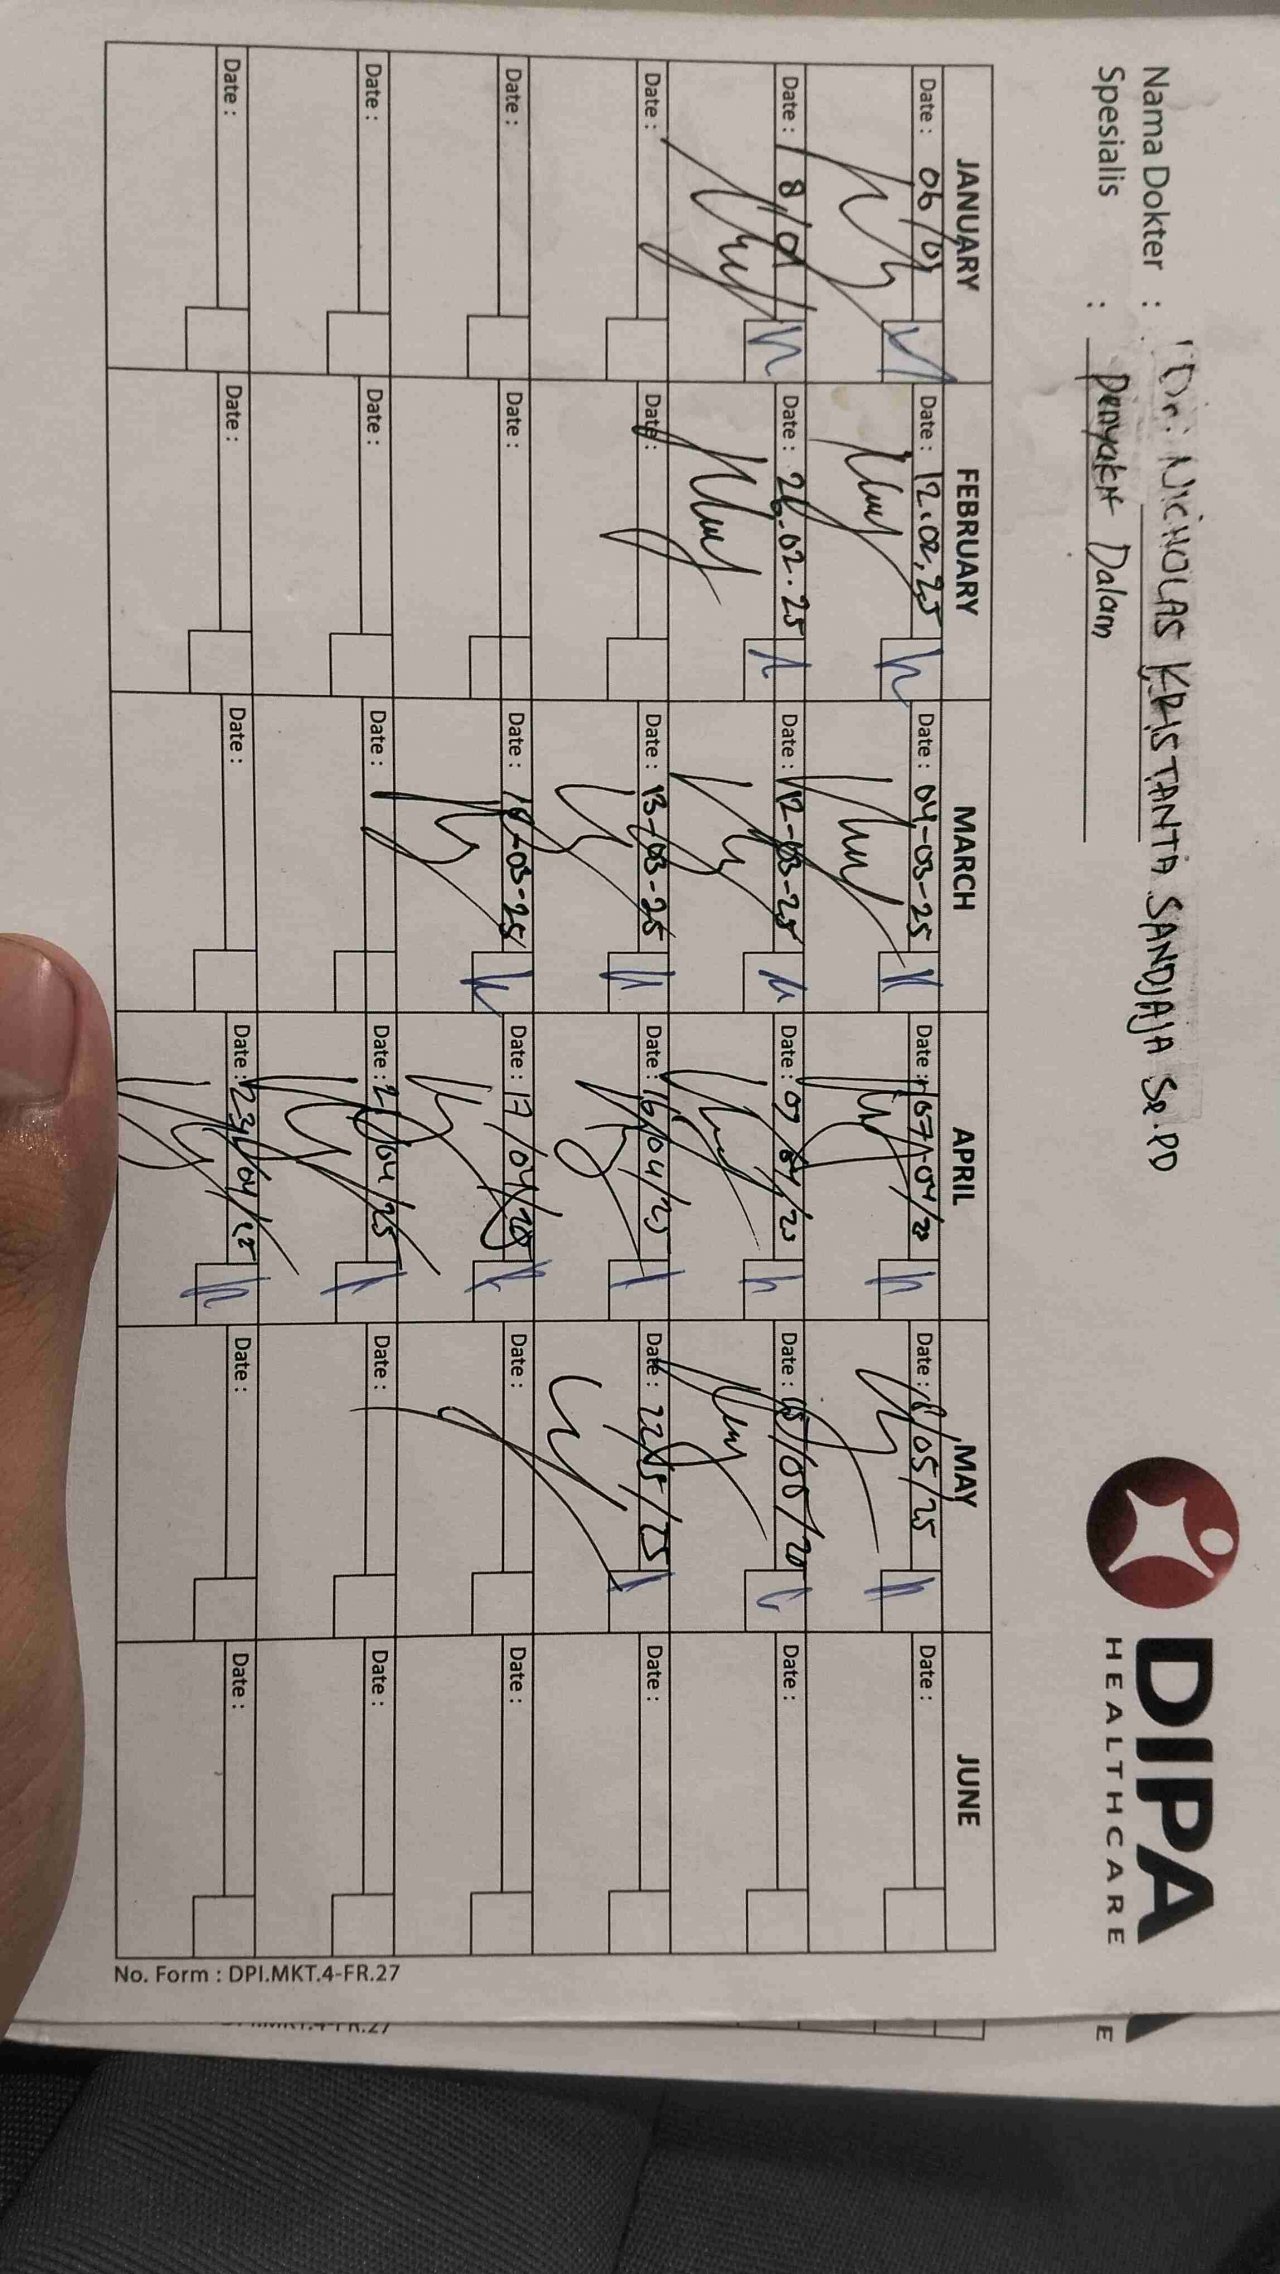 Nama Dokter : Dr. NICHOLAS KRISTANTA SANDJAJA Sp.PD
Spesialis : Penyakit Dalam
DIPA
HEALTHCARE
JANUARY FEBRUARY MARCH APRIL MAY JUNE
Date : 06/01 Date : 12.02.25 Date : 04-03-25 Date : 07/04/25 Date : 8/05/25 Date :
Date : 8/01 Date : 26.02.25 Date : 12-03-25 Date : Date : 15/05/25 Date :
Date : Date : Date : 13-03-25 Date : 16/04/25 Date : 22/05/25 Date :
Date : Date : Date : Date : 17/04/25 Date : Date :
Date : Date : Date : Date : 21/04/25 Date : Date :
Date : Date : Date : Date : 23/04/25 Date : Date :
No. Form : DPI.MKT.4-FR.27